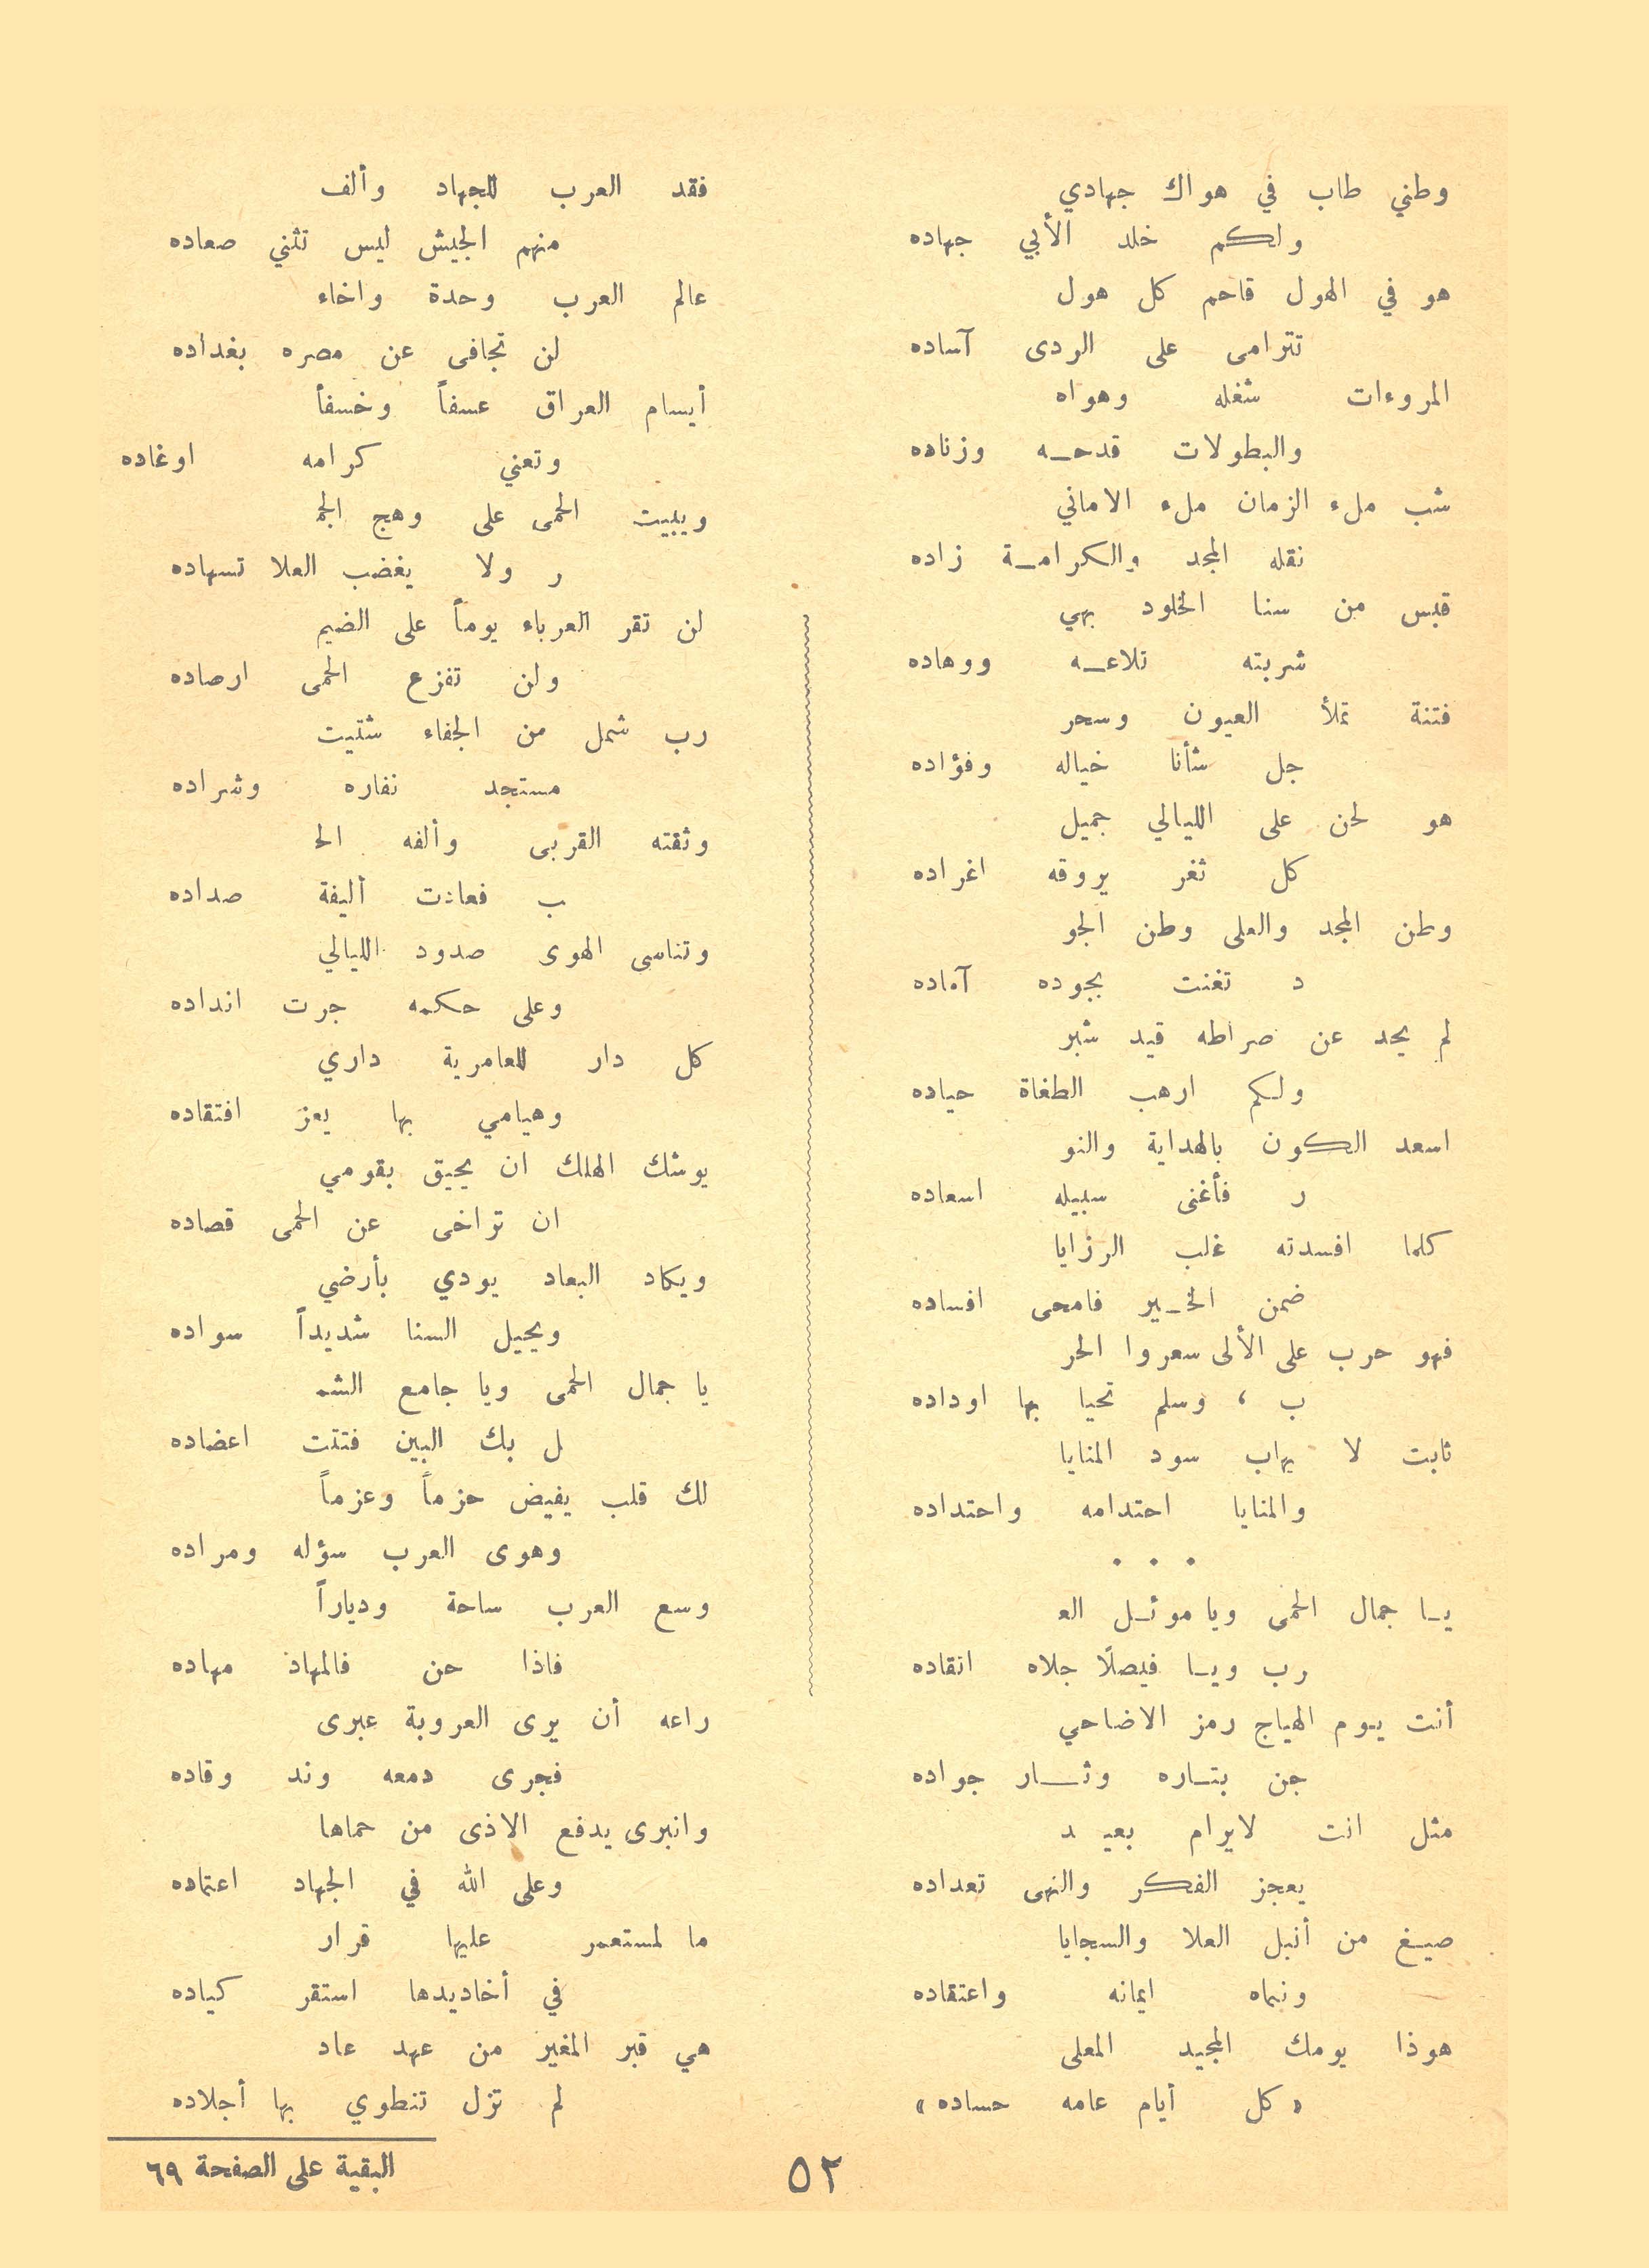 وطني طاب في هواك جهادي
ولكم خلد الأبي جهاده
هو في الهول قاحم كل هول
تترامى على الردى آساده
المروءات شغله وهواه
والبطولات قدحه وزناده
شب ملء الزمان ملء الاماني
نقله المجد والكرامة زاده
قبس من سنا الخلود بهي
شربته تلاعه ووهاده
فتنة تملأ العيون وسحر
جل شأنا خياله وفؤاده
هو لحن على الليالي جميل
كل ثغر يروقه اغراده
وطن المجد والعلى وطن الجو
د تغنت بجوده آماده
لم يحد عن صراطه قيد شبر
ولكم ارهب الطغاة حياده
اسعد الكون بالهداية والنو
ر فأغنى سبيله اسعاده
كلما افسدته غلب الرزايا
ضمن الخير فامحى افساده
فهو حرب على الألى سعروا الحر
ب ، وسلم تحيا بها اوداده
ثابت لا يهاب سود المنايا
والمنايا احتدامه واحتداده
• • •
يا جمال الحمى ويا موئل الع
رب ويا فيصلًا جلاه انقاده
أنت يوم الهياج رمز الاضاحي
جن بتاره وثار جواده
مثل انت لايرام بعيد
يعجز الفكر والنهى تعداده
صيغ من أنبل العلا والسجايا
ونماه ايمانه واعتقاده
هوذا يومك المجيد المعلى
« كل أيام عامه حساده »
فقد العرب للجهاد وألف
منهم الجيش ليس تثني صعاده
عالم العرب وحدة واخاء
لن تجافى عن مصره بغداده
أيسام العراق عسفاً وخسفاً
وتعني كرامه اوغاده
ويبيت الحمى على وهج الجم
ر ولا يغضب العلا تسهاده
لن تقر العرباء يوماً على الضيم
ولن تفزع الحمى ارصاده
رب شمل من الجفاء شتيت
مستجد نفاره وشراده
وثقته القربى وألفه الح
ب فعادت أليفة صداده
وتناسى الهوى صدود الليالي
وعلى حكمه جرت انداده
كل دار للعامرية داري
وهيامي بها يعز افتقاده
يوشك الهلك ان يحيق بقومي
ان تراخى عن الحمى قصاده
ويكاد البعاد يودي بأرضي
ويحيل السنا شديداً سواده
يا جمال الحمى ويا جامع الشم
ل بك البين فتتت اعضاده
لك قلب يفيض حزماً وعزماً
وهوى العرب سؤله ومراده
وسع العرب ساحة ودياراً
فاذا حن فالمهاد مهاده
راعه أن يرى العروبة عبرى
فجرى دمعه وند وقاده
وانبرى يدفع الاذى من حماها
وعلى الله في الجهاد اعتماده
ما لمستعمر عليها قرار
في أخاديدها استقر كياده
هي قبر المغير من عهد عاد
لم تزل تنطوي بها أجلاده
البقية على الصفحة ٦٩
٥٢